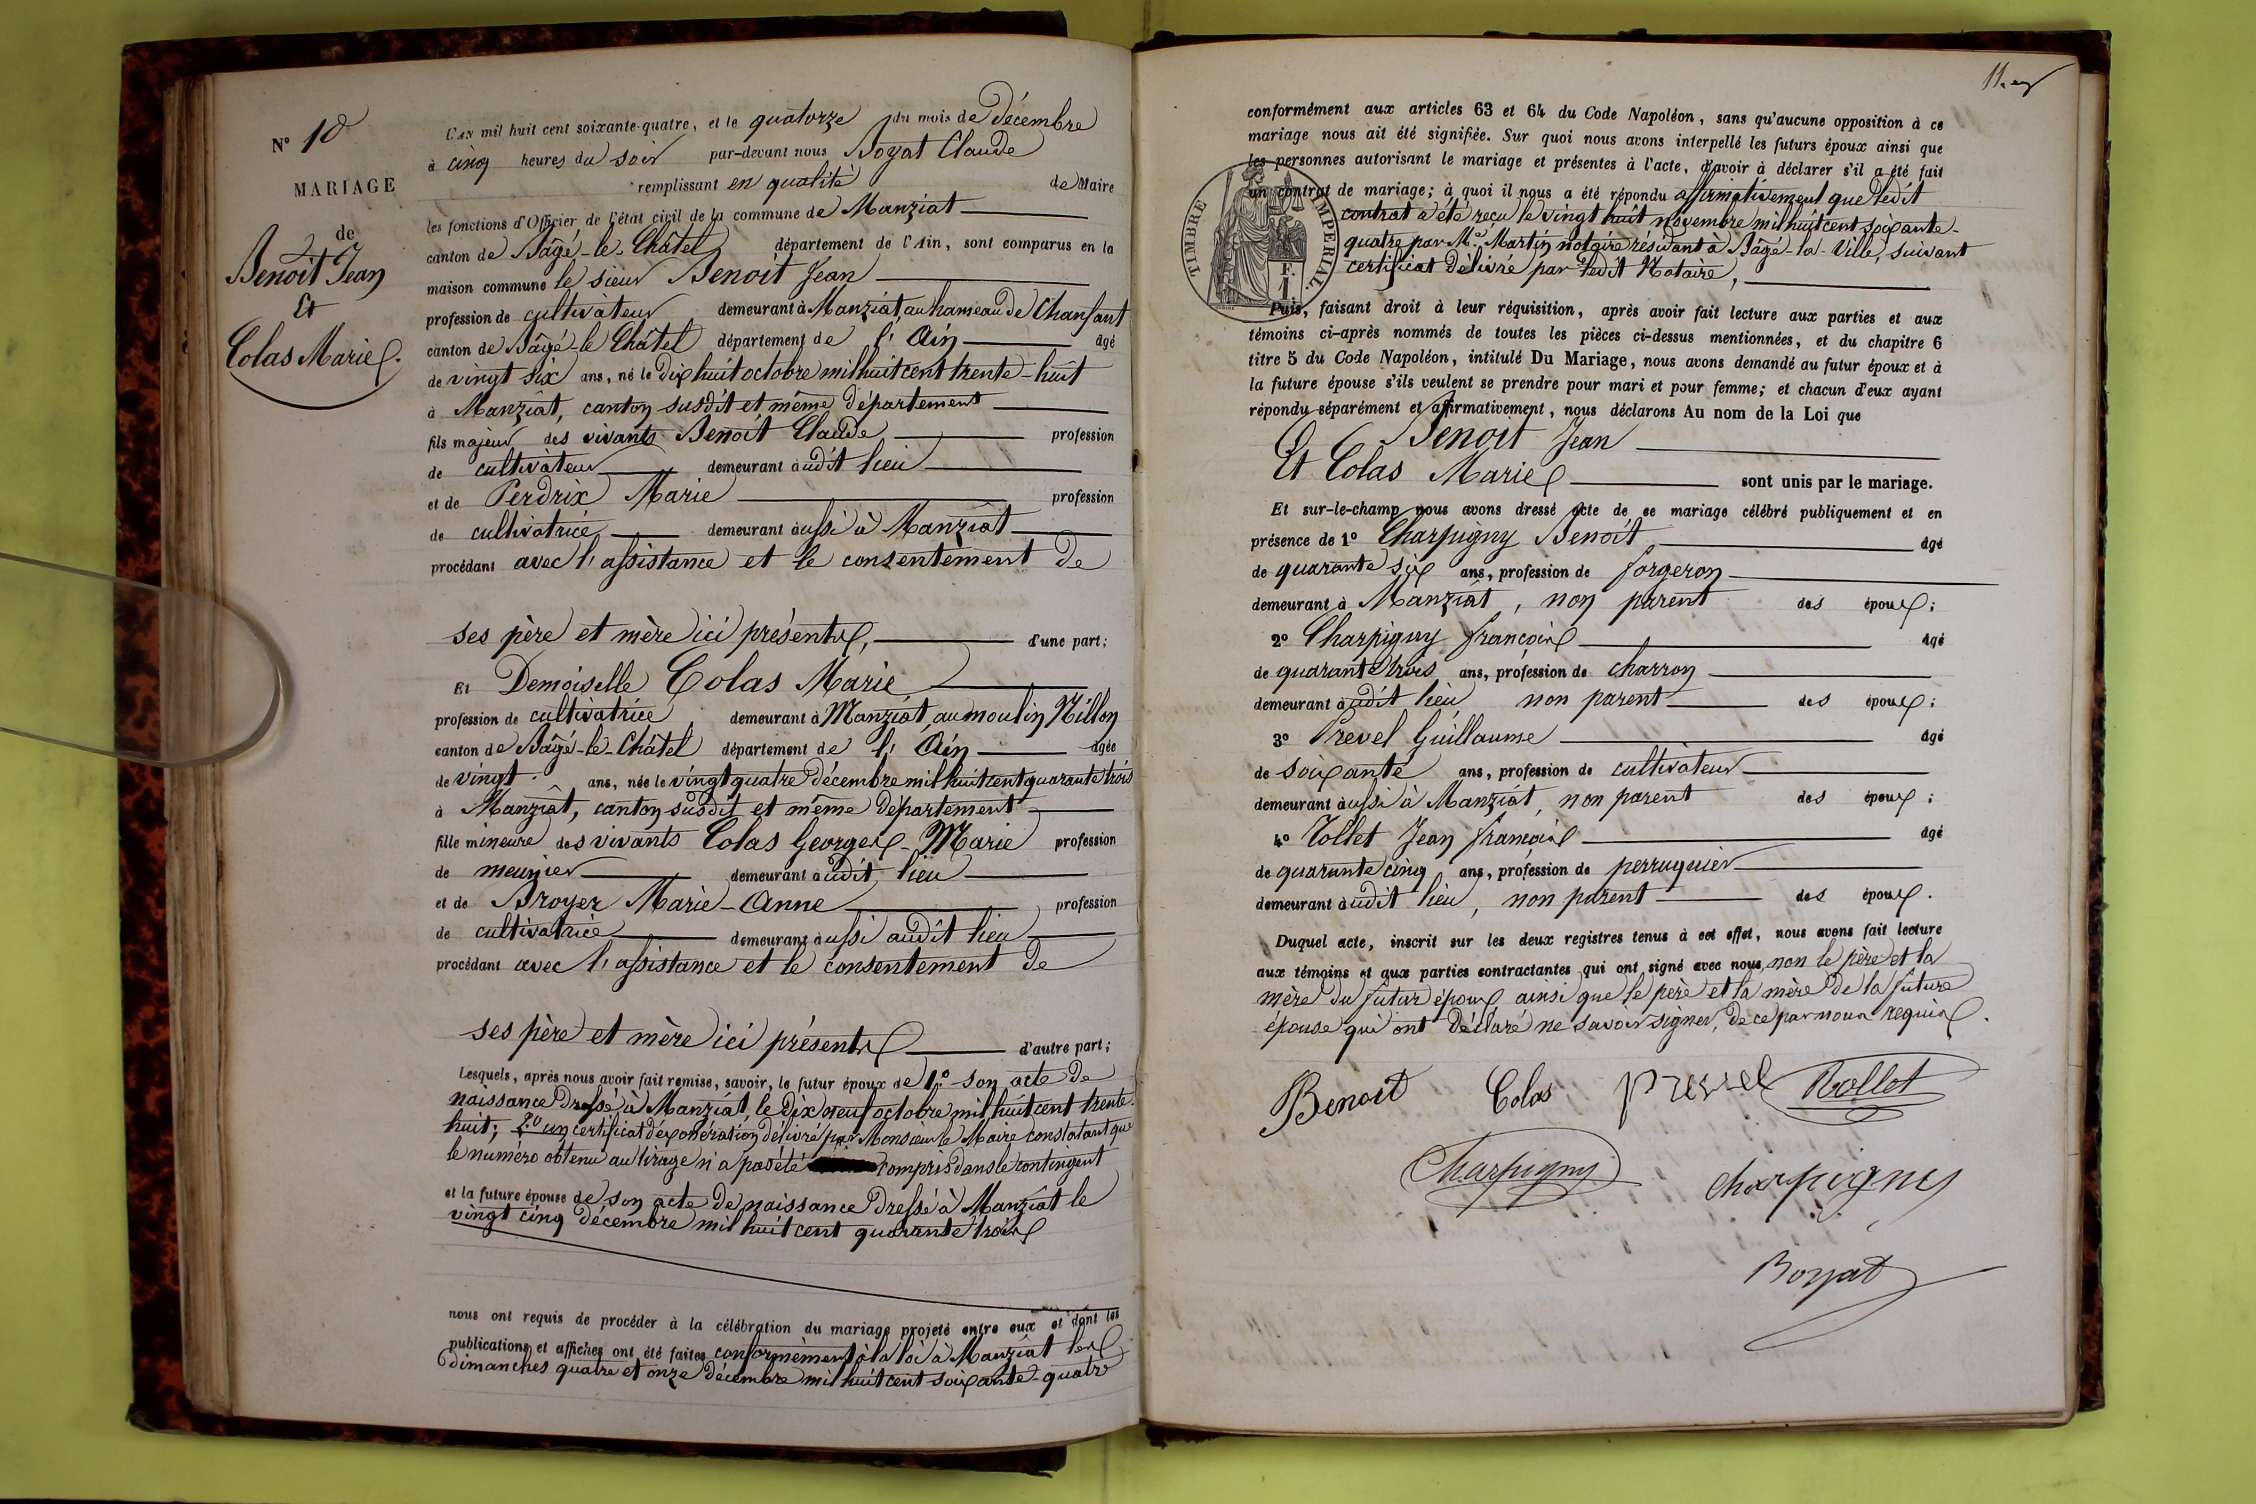 N° 10
MARIAGE
de
Benoit Jean
Et
Colas Marie
L'AN mil huit cent soixante-quatre, et le quatorze du mois de Décembre
à cinq heures du soir par-devant nous Boyat Claude
remplissant en qualité de Maire
les fonctions d'Officier de l'état civil de la commune de Manziat
canton de Bâgé-le-Châtel département de l'Ain, sont comparus en la
maison commune le sieur Benoit Jean
profession de cultivateur demeurant à Manziat, au hameau de Chanfant
canton de Bâgé-le Châtel département de l'Ain âgé
de vingt six ans, né le Dix huit octobre mil huit cent trente-huit
à Manziat, canton susdit et même Département
fils majeur des vivants Benoit Claude profession
de cultivateur demeurant audit lieu
et de Perdrix Marie profession
de cultivatrice demeurant aussi à Manziat
procédant avec l'assistance et le consentement de
ses père et mère ici présents, d'une part;
Et Demoiselle Colas Marie
profession de cultivatrice demeurant à Manziat, au moulin Nillon
canton de Bâgé-le-Châtel département de l'Ain âgée
de vingt ans, née le vingt quatre Décembre mil huit cent quarante trois
à Manziat, canton susdit et même Département
fille mineure des vivants Colas Georges-Marie profession
de meunier demeurant audit lieu
et de Broyer Marie-Anne profession
de cultivatrice demeurant aussi audit lieu
procédant avec l'assistance et le consentement de
ses père et mère ici présents d'autre part;
Lesquels, après nous avoir fait remise, savoir, le futur époux de 1° son acte de
naissance Dressé à Manziat, le Dix neuf octobre mil huit cent trente-
huit; 2° un certificat d'exonération délivré par Monsieur le Maire constatant que
le numéro obtenu au tirage n'a pas été compris dans le contingent
et la future épouse de son acte de naissance Dressé à Manziat le
vingt cinq décembre mil huit cent quarante trois
nous ont requis de procéder à la célébration du mariage projeté entre eux et dont les
publications et affiches ont été faites conformément à la loi à Manziat les
Dimanches quatre et onze Décembre mil huit cent soixante-quatre
11.
conformément aux articles 63 et 64 du Code Napoléon, sans qu'aucune opposition à ce
mariage nous ait été signifiée. Sur quoi nous avons interpellé les futurs époux ainsi que
les personnes autorisant le mariage et présentes à l'acte, d'avoir à déclarer s'il a été fait
un contrat de mariage; à quoi il nous a été répondu affirmativement que ledit
contrat a été reçu le vingt huit novembre mil huit cent soixante-
quatre par Me Martin notaire résidant à Bâgé-la-Ville, suivant
certificat délivré par ledit Notaire,
TIMBRE IMPÉRIAL.
F.
1
Puis, faisant droit à leur réquisition, après avoir fait lecture aux parties et aux
témoins ci-après nommés de toutes les pièces ci-dessus mentionnées, et du chapitre 6
titre 5 du Code Napoléon, intitulé Du Mariage, nous avons demandé au futur époux et à
la future épouse s'ils veulent se prendre pour mari et pour femme; et chacun d'eux ayant
répondu séparément et affirmativement, nous déclarons Au nom de la Loi que
Benoit Jean
Et Colas Marie sont unis par le mariage.
Et sur-le-champ nous avons dressé acte de ce mariage célébré publiquement et en
présence de 1° Charpigny Benoit âgé
de quarante six ans, profession de forgeron
demeurant à Manziat, non parent des époux;
2° Charpigny françois âgé
de quarante trois ans, profession de charron
demeurant audit lieu non parent des époux;
3° Prevel Guillaume âgé
de soixante ans, profession de cultivateur
demeurant aussi à Manziat, non parent des époux;
4° Tollet Jean françois âgé
de quarante cinq ans, profession de perruquier
demeurant audit lieu, non parent des époux.
Duquel acte, inscrit sur les deux registres tenus à cet effet, nous avons fait lecture
aux témoins et aux parties contractantes qui ont signé avec nous, non le père et la
mère du futur époux ainsi que le père et la mère de la future
épouse qui ont Déclaré ne savoir signer, de ce par nous requis.
Benoit Colas Prevel Tollet
Charpigny Charpigny
Boyat